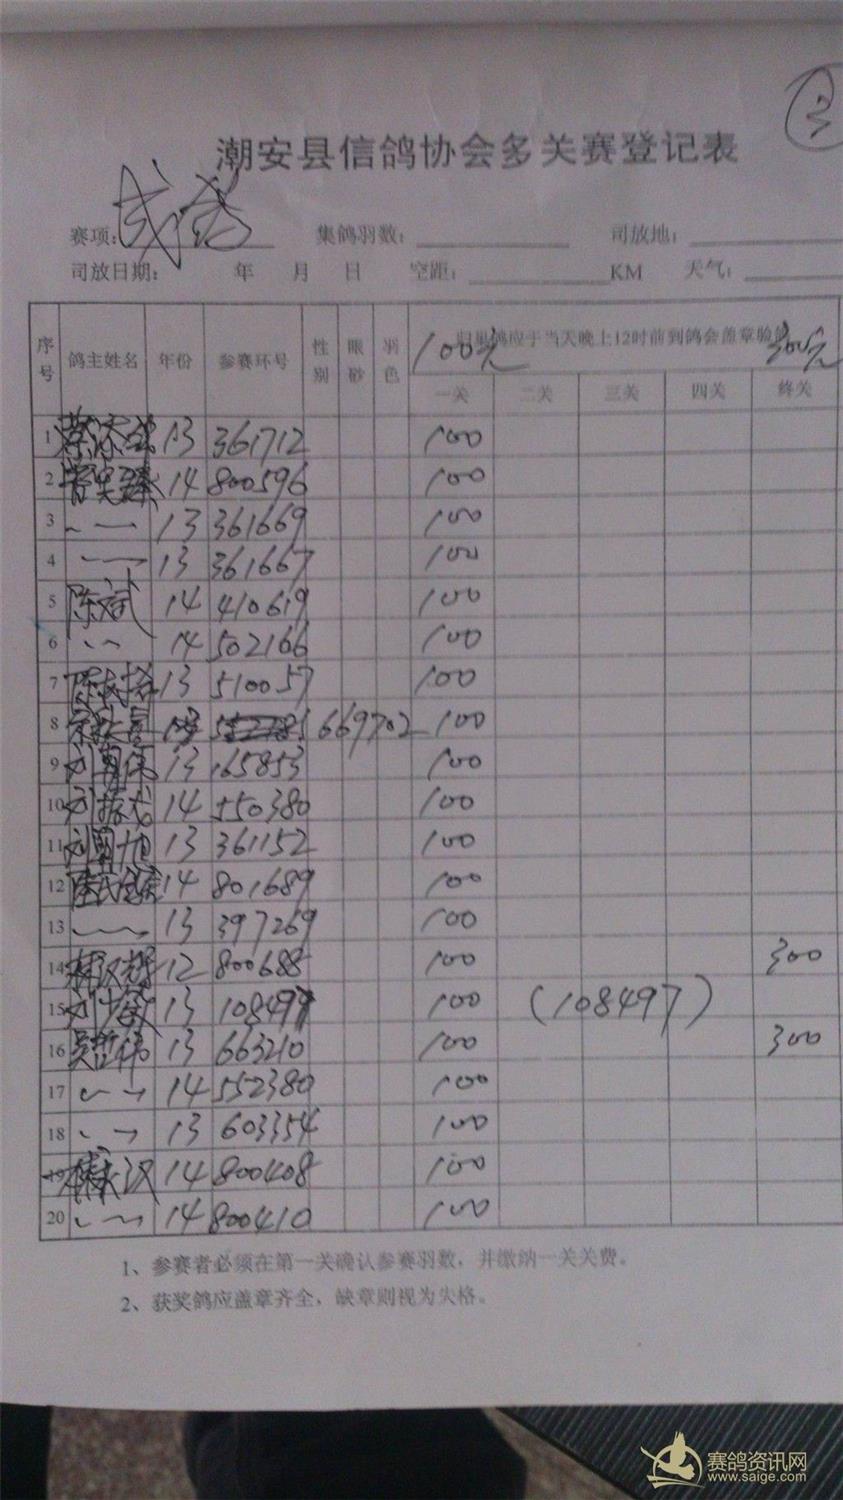 3
潮安县信鸽协会多关赛登记表
赛项: 成鸽 集鸽羽数: 司放地:
司放日期: 年 月 日 空距: KM 天气:
序号 鸽主姓名 年份 参赛环号 性别 眼砂 羽色 归巢鸽应于当天晚上12时前到鸽会盖章验
100元 300元
一关 二关 三关 四关 终关
1 13 361712 100
2 14 800596 100
3 13 361669 100
4 13 361667 100
5 陈斌 14 410619 100
6 14 502166 100
7 13 510057 100
8 13 669702 100
9 13 165853 100
10 14 550380 100
11 13 361152 100
12 14 801689 100
13 13 397269 100
14 12 800688 100 300
15 13 108497 100 (108497)
16 13 663210 100 300
17 14 552380 100
18 13 603354 100
19 14 800408 100
20 14 800410 100
1、参赛者必须在第一关确认参赛羽数，并缴纳一关关费。
2、获奖鸽应盖章齐全，缺章则视为失格。
赛鸽资讯网
www.saige.com